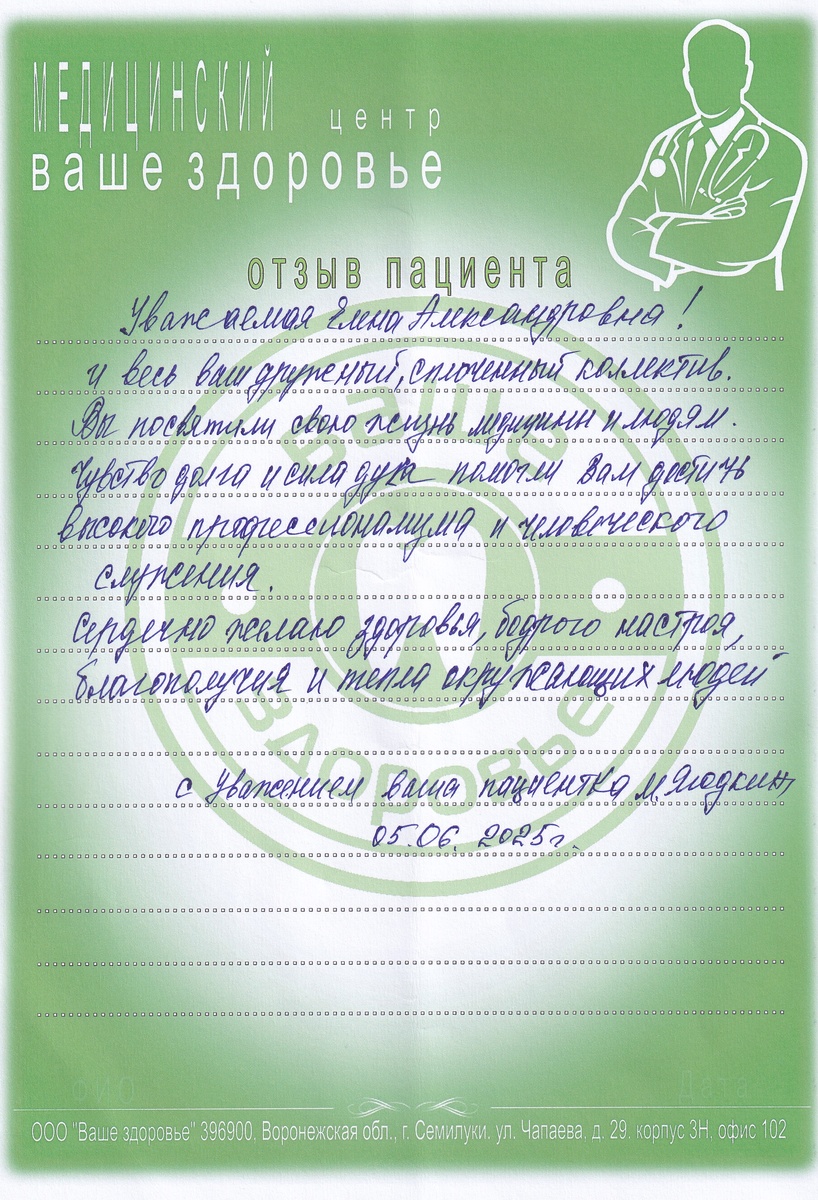 МЕДИЦИНСКИЙ центр
ваше здоровье
отзыв пациента
Уважаемая Елена Александровна!
и весь ваш дружный, сплоченный коллектив.
Вы посвятили свою жизнь медицине и людям.
Чувство долга и сила духа помогли Вам достичь
высокого профессионализма и человеческого
служения.
Сердечно желаю здоровья, бодрого настроя,
благополучия и тепла окружающих людей
с Уважением ваша пациентка М.
05.06. 2025г.
ВАШЕ
ЗДОРОВЬЕ
ФИО Дата
ООО "Ваше здоровье" 396900, Воронежская обл., г. Семилуки. ул. Чапаева, д. 29. корпус 3Н, офис 102